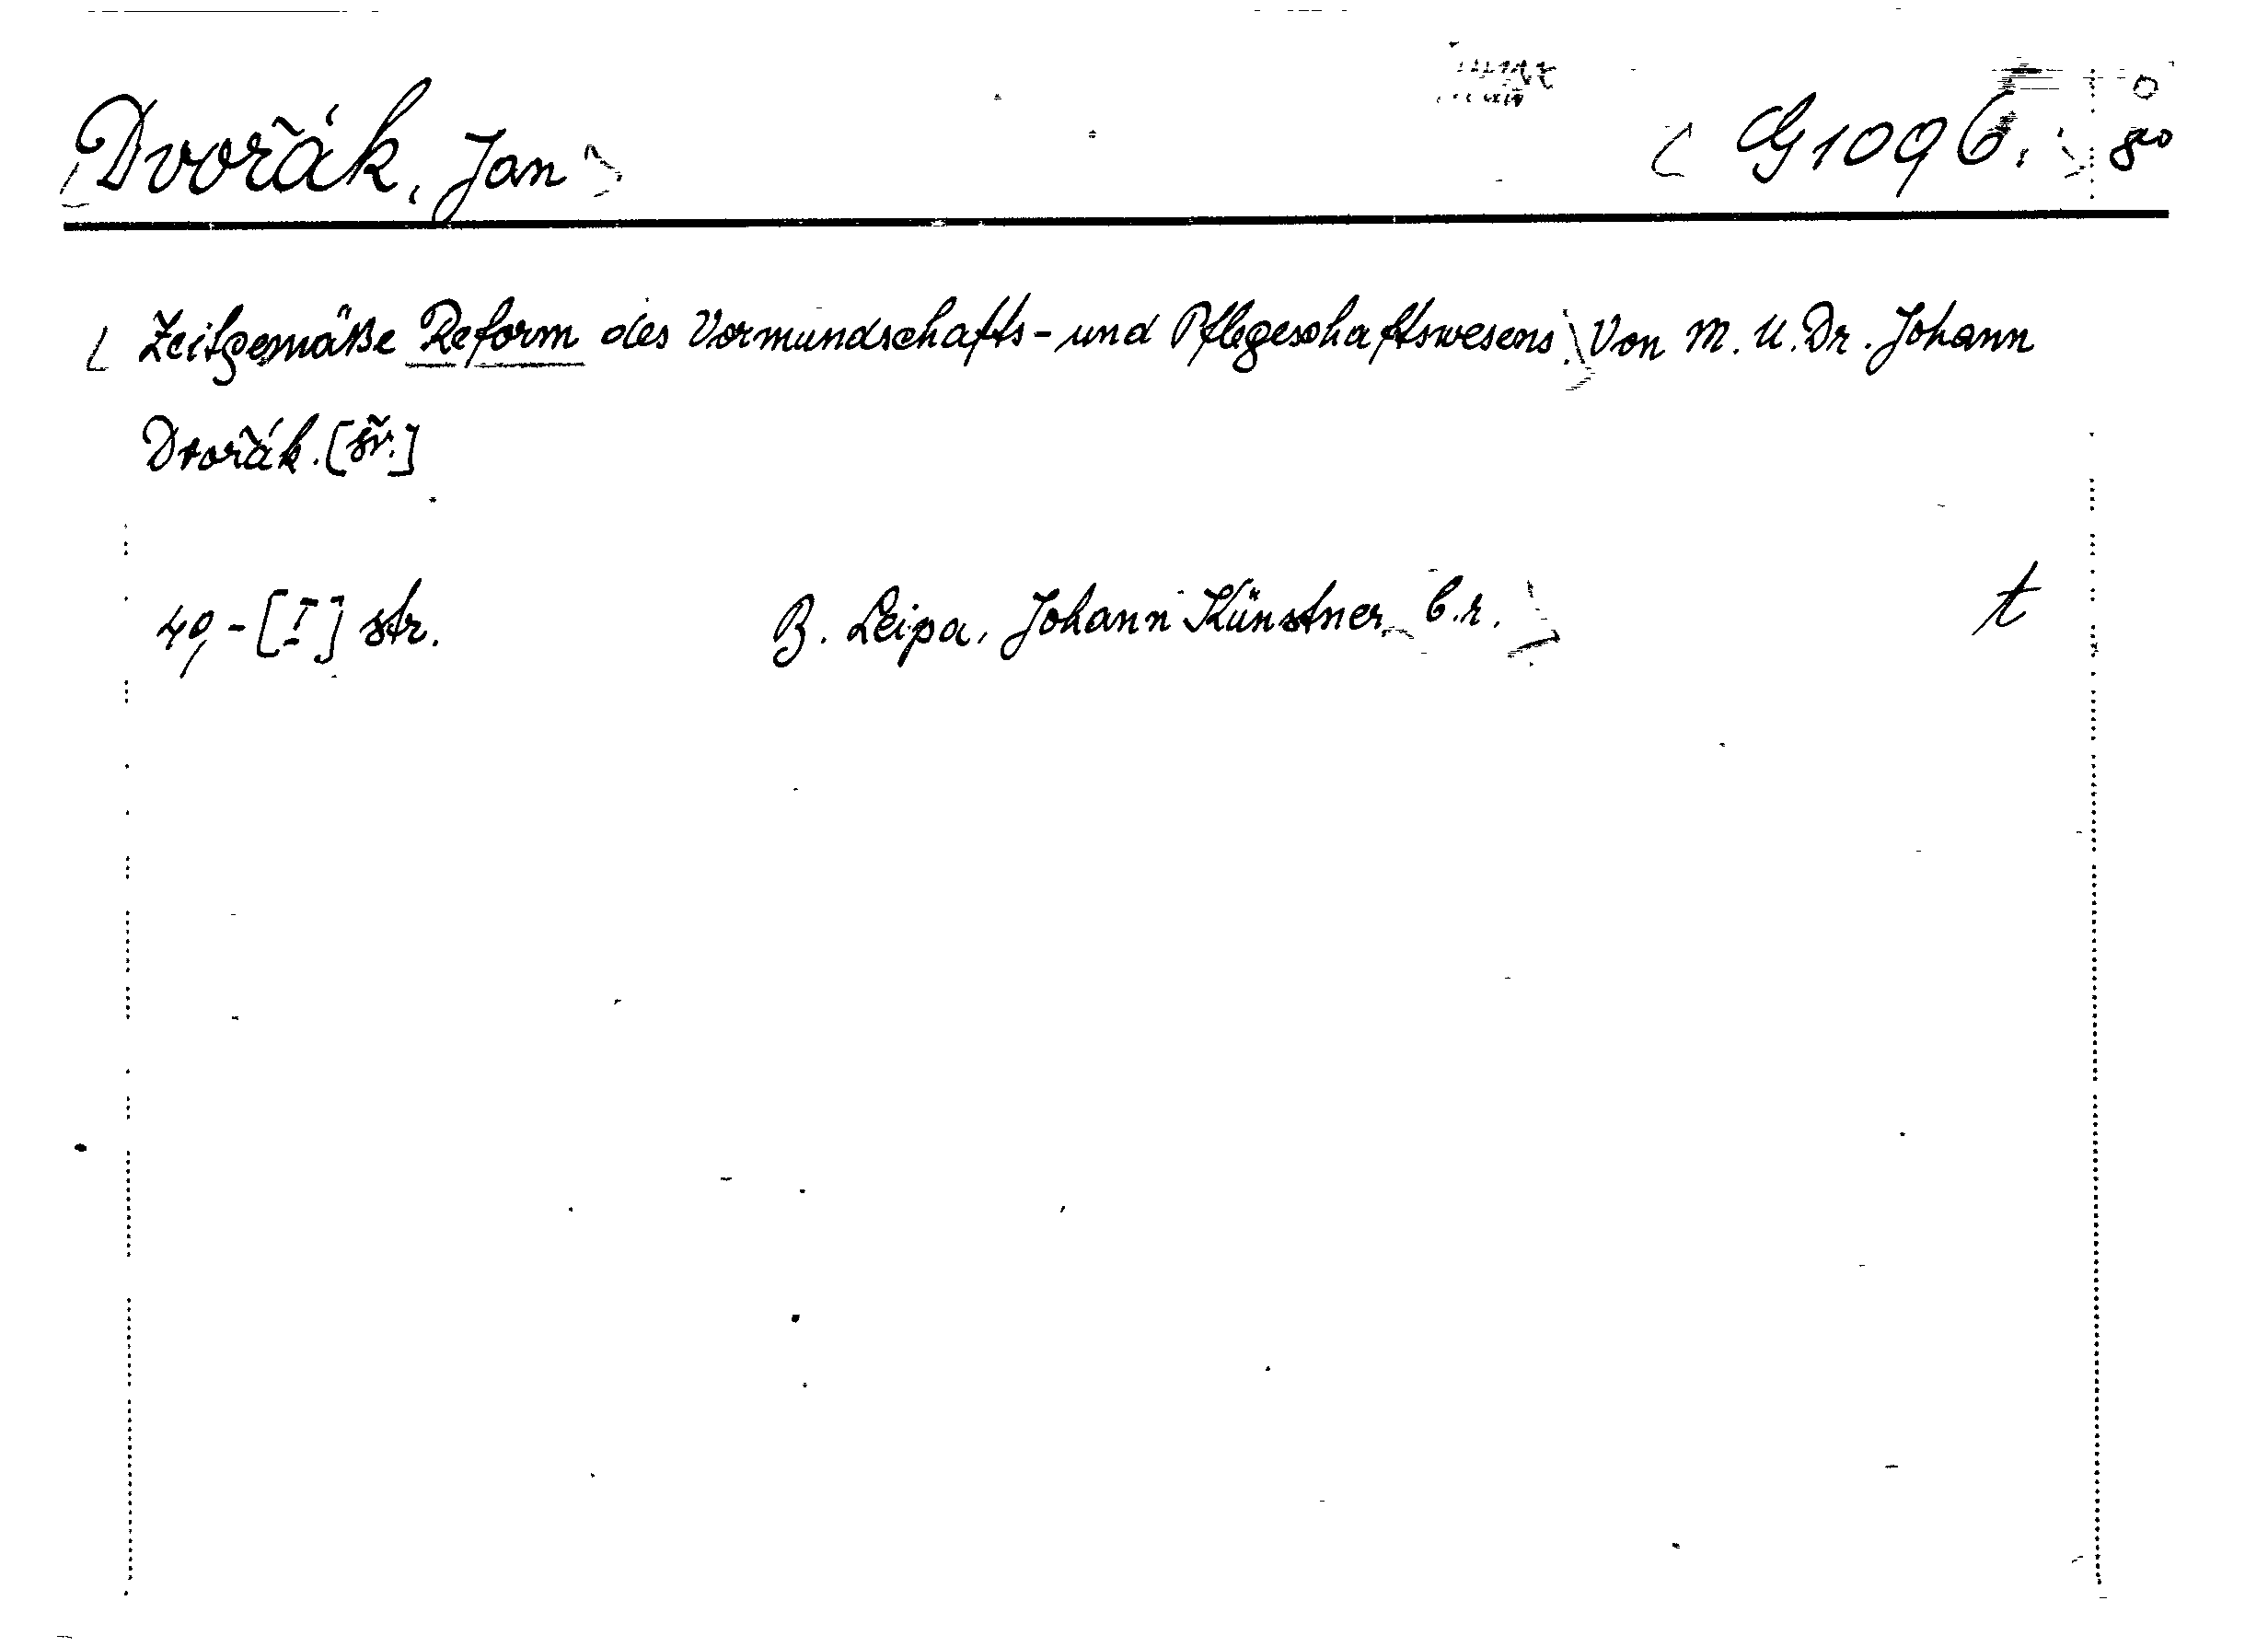 Dvořák, Jan
G 1096.
8⁰
Zeitgemäße Reform des Vormundschafts- und Pflegeschaftswesens. Von M. U. Dr. Johann
Dvořák. [šv.]
40, - [I] str. B. Leipa, Johann Künstner b.r. t